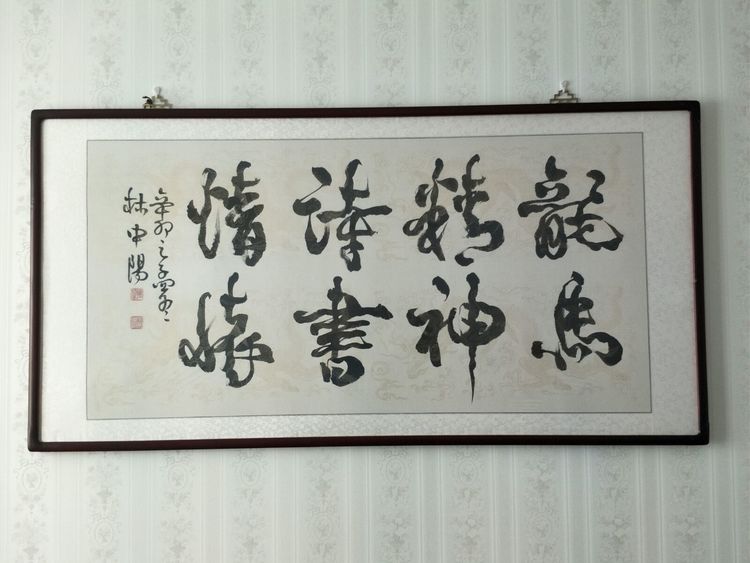 龍馬
精神
詩書
情懷
辛卯之
林中陽